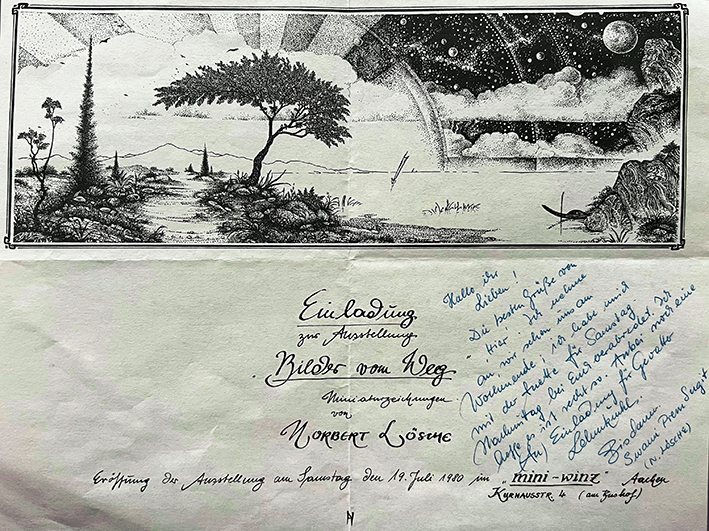 Einladung
zur Ausstellung
Bilder vom Weg
Miniaturzeichnungen
von
Norbert Lösche
Eröffnung der Ausstellung am Samstag den 19. Juli 1980 im "mini-winz" Aachen
Kurhausstr. 4 (am Bushof)
N
Hallo ihr
Lieben!
Die besten Grüße von
Hier! Ich nehme
an, wir sehen uns am
Wochenende; ich habe mich
mit der für Samstag
Nachmittag bei Euch verabredet. Ich
hoffe es ist recht so. Anbei noch eine
Einladung für Gevatter
Lehmkuhl.
Bis dann
Swami Prem Sugit
(N. Lösche)